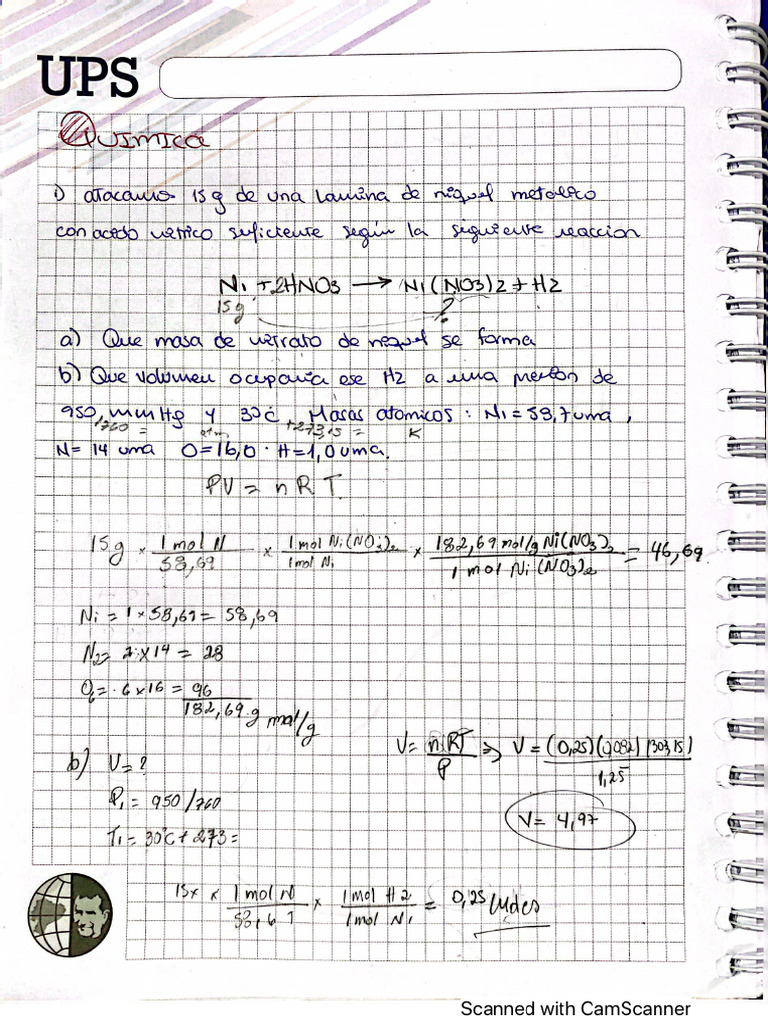 UPS
QUIMICA
1) atacamos 15g de una lamina de niquel metalico
con acido nitrico suficiente según la siguiente reaccion
Ni + 2HNO3 → Ni(NO3)2 + H2
15g
?
a) Que masa de nitrato de niquel se forma
b) Que volumen ocuparia ese H2 a una presion de
950 mmHg y 30c. Masas atomicos: Ni = 58,7uma,
/760 = atm +273,15 = K
N= 14 uma O=16,0 . H=1,0uma.
PV = nRT.
15g × 1 mol N / 58,69 × 1 mol Ni(NO3)2 / 1 mol Ni × 182,69 mol/g Ni(NO3)2 / 1 mol Ni(NO3)2 = 46,69
Ni = 1 × 58,69 = 58,69
N2= 2 × 14 = 28
O6= 6 × 16 = 96
182,69.g mol/g
b) V = ?
V = nRT / P ⇒ V = (0,25)(0,082)(303,15) / 1,25
P1 = 950/760
V= 4,97
T1 = 30°C + 273 =
15x × 1 mol N / × 1 mol H2 / 1 mol Ni = 0,25 Moles
Scanned with CamScanner